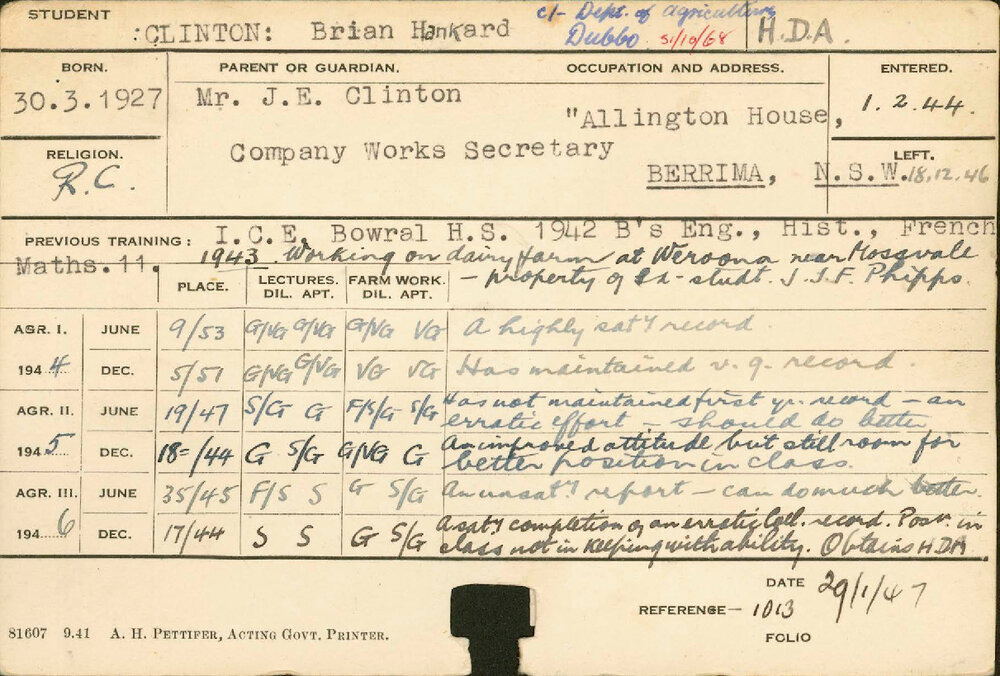 STUDENT
:CLINTON: Brian Hankard
c/- Dept. of Agriculture
Dubbo. 31/10/68
H.D.A.
BORN.
30.3.1927
PARENT OR GUARDIAN.
OCCUPATION AND ADDRESS.
Mr. J.E. Clinton
"Allington House,
Company Works Secretary
BERRIMA, N.S.W.
ENTERED.
1.2.44.
RELIGION.
R.C.
LEFT.
18.12.46
PREVIOUS TRAINING: I.C.E. Bowral H.S. 1942 B's Eng., Hist., French
Maths.11. 1943. Working on dairy farm at Weroona near Mossvale
– property of Ex-studt. J.J.F. Phipps.
PLACE. LECTURES. FARM WORK.
DIL. APT. DIL. APT.
AGR. I. JUNE 9/53 G/VG G/VG G/VG VG A highly sat'y record.
1944 DEC. 5/51 G/VG G/VG VG VG Has maintained v.g. record.
AGR. II. JUNE 19/47 S/G G F/S/G S/G Has not maintained first yr. record – an
erratic effort. should do better
1945 DEC. 18=/44 G S/G G/VG G An improved attitude but still room for
better position in class.
AGR. III. JUNE 35/45 F/S S G S/G An unsat'y report – can do much better.
1946 DEC. 17/44 S S G S/G A sat'y completion of an erratic Coll. record. Posn. in
class not in keeping with ability. Obtains HDA
DATE 29/1/47
REFERENCE– 1013
FOLIO
81607 9.41 A. H. PETTIFER, ACTING GOVT. PRINTER.